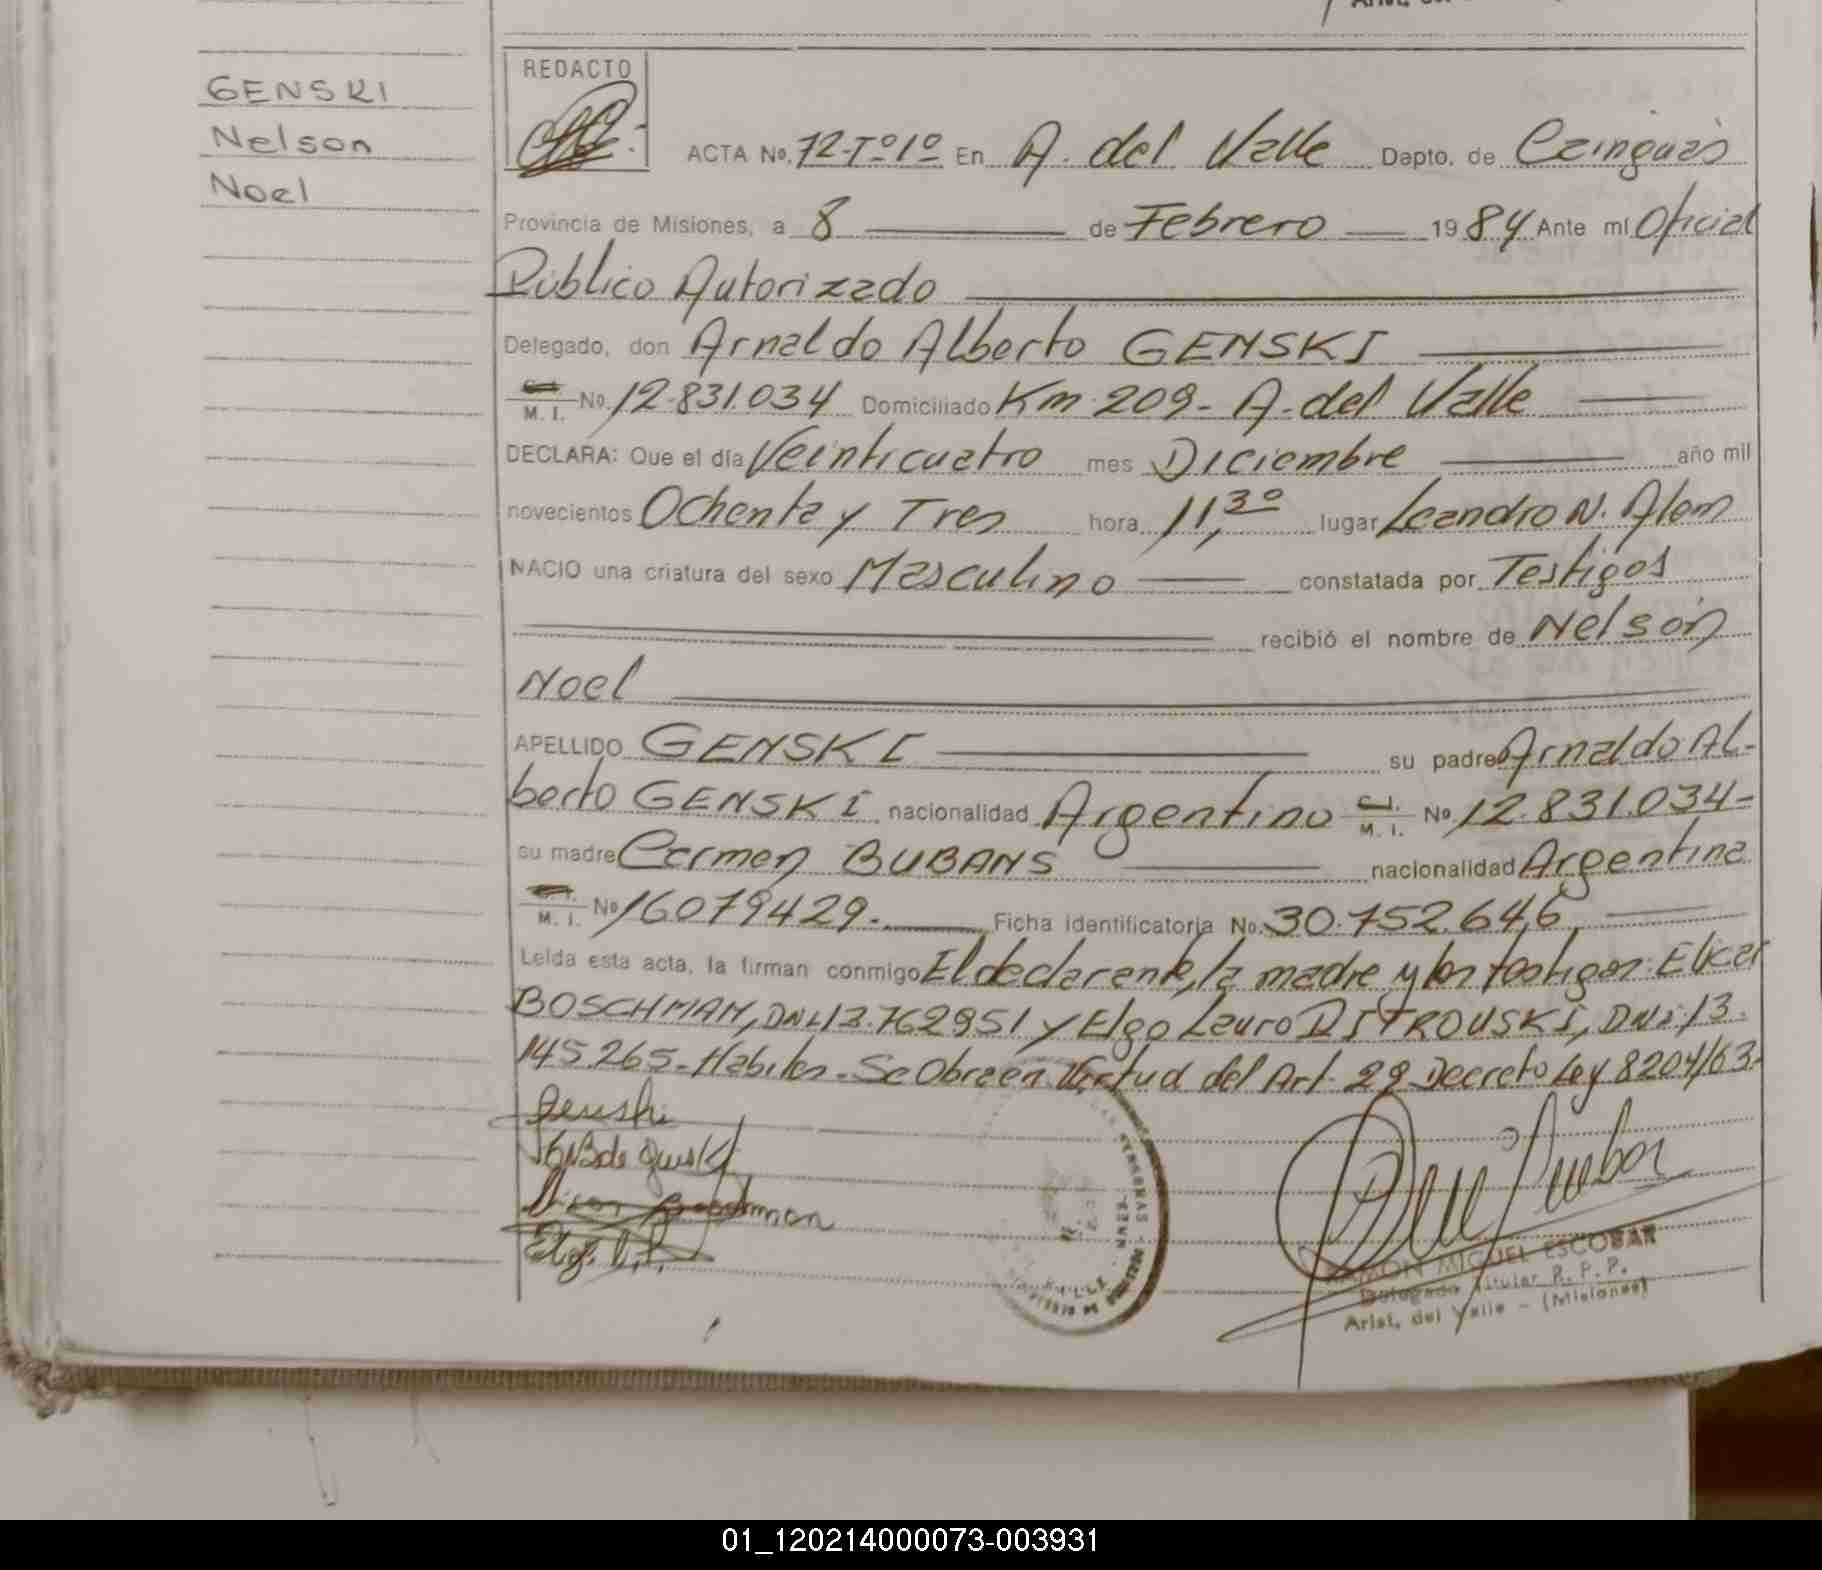 GENSKI
Nelson
Noel
REDACTO
ACTA No. 72-Tº1º En A. del Valle Dapto. de Cainguás
Provincia de Misiones, a 8 de Febrero 1984 Ante mi Oficial
Público Autorizado
Delegado, don Arnaldo Alberto GENSKI
M. I. No. 12.831.034 Domiciliado Km 209- A. del Valle
DECLARA: Que el día Veinticuatro mes Diciembre año mil
novecientos Ochenta y Tres hora 11,30 lugar Leandro N. Alem
NACIO una criatura del sexo Masculino constatada por Testigos
recibió el nombre de Nelson
Noel
APELLIDO GENSKI su padre Arnaldo Al-
berto GENSKI nacionalidad Argentino C.I. M. I. No. 12.831.034-
su madre Carmen BUBANS nacionalidad Argentina
C.I. M. I. No 16079429. Ficha identificatoria No. 30.752.646
Leída esta acta, la firman conmigo El declarante, la madre y los testigos: Elicer
BOSCHMAN, DNI 13.762951 y Elgo Lauro DSTROUSKI, DNI: 13.
145.265- Hábiles. Se Obra en Virtud del Art. 29 Decreto Ley 8204/63.
Genski
RAMON MIGUEL ESCOBAR
Delegado Titular R. P. P.
Arist. del Valle - (Misiones)
01_120214000073-003931